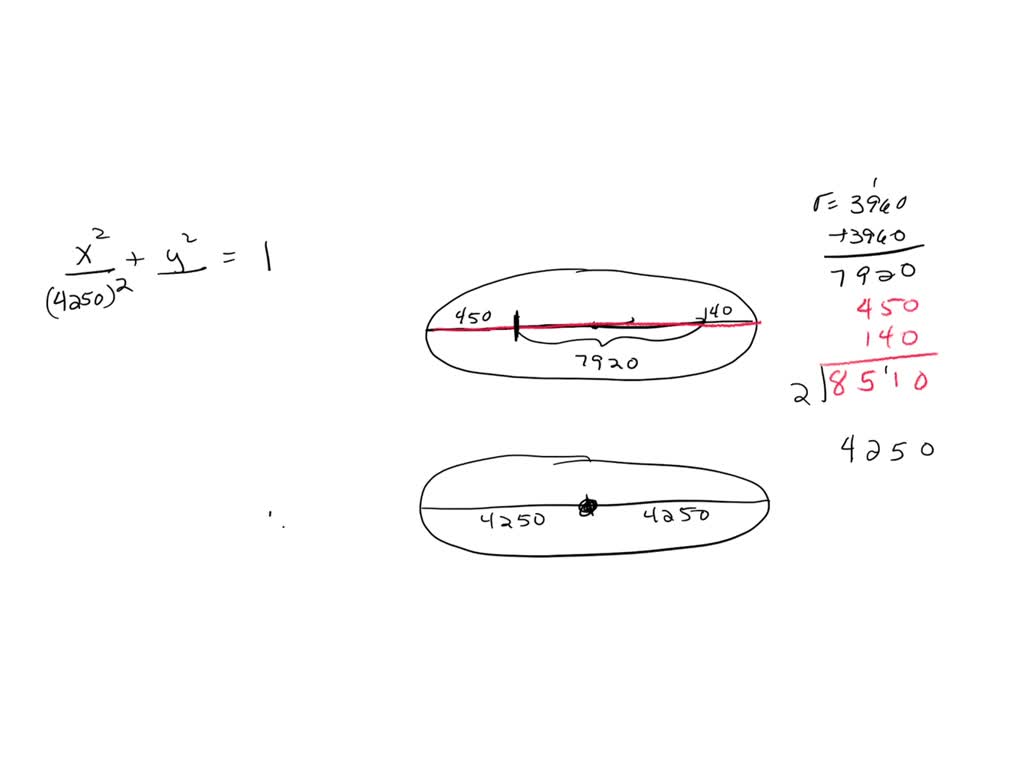 x² + y² = 1
(4250)²
450 140
7920
4250 4250
r = 3960
+3960
7920
450
140
2 8510
4250